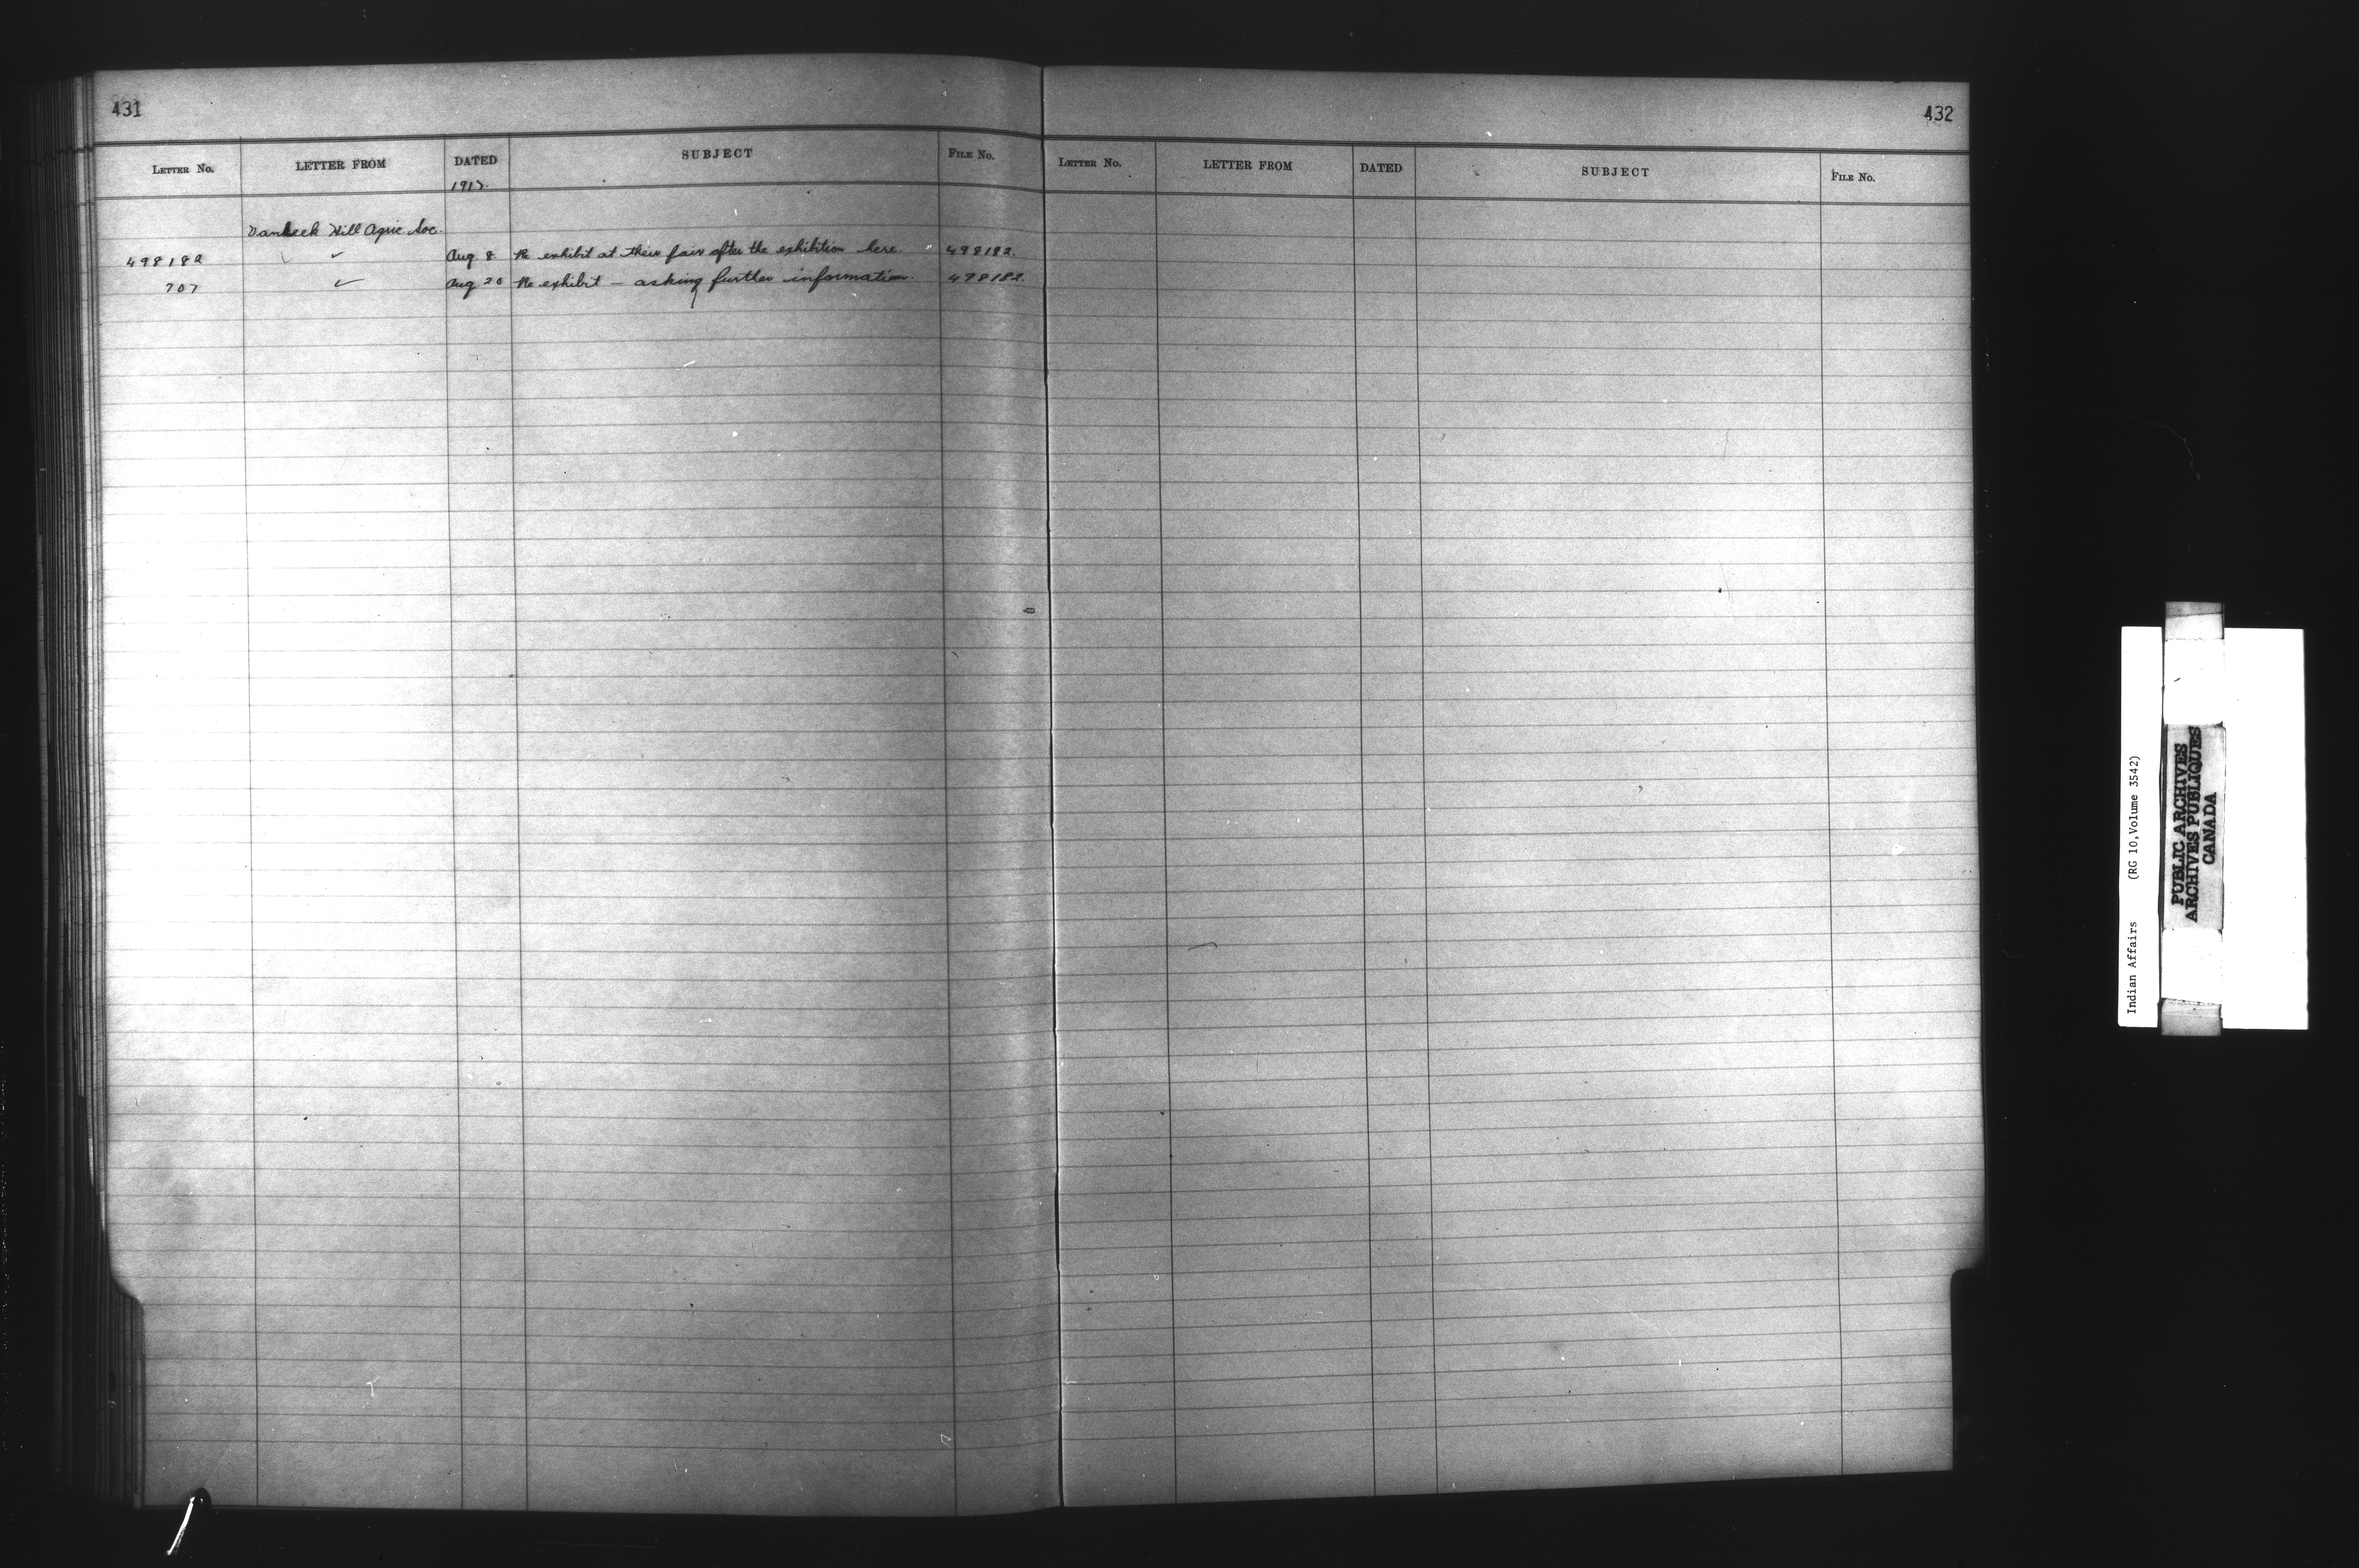 431
LETTER No. LETTER FROM DATED SUBJECT FILE No.
1917.
Vankeek Hill Agric. Soc.
498182 " ✓ Aug 8 Re exhibit at their fair after the exhibition here. 498182.
707 ✓ Aug 20 Re exhibit — asking further information. 498182.
432
LETTER No. LETTER FROM DATED SUBJECT FILE No.
Indian Affairs (RG 10, Volume 3542)
PUBLIC ARCHIVES
ARCHIVES PUBLIQUES
CANADA